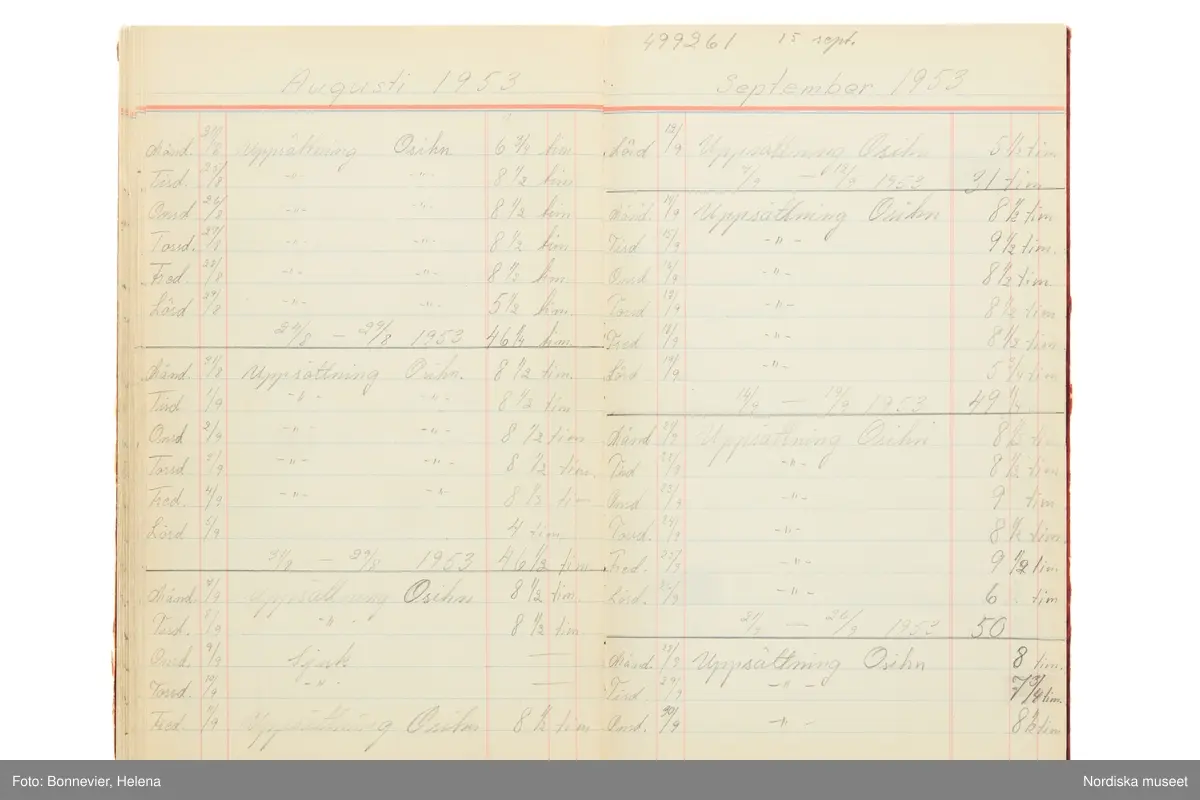 Augusti 1953
Månd 24/8 Uppsättning Osihn 6 3/4 tim
Tisd. 25/8 -"- -"- 8 1/2 tim
Onsd 26/8 -"- -"- 8 1/2 tim
Torsd. 27/8 -"- -"- 8 1/2 tim
Fred. 28/8 -"- -"- 8 1/2 tim.
Lörd 29/8 -"- -"- 5 1/2 tim.
24/8 — 29/8 1953 46 1/4 tim.
Månd. 31/8 Uppsättning Osihn. 8 1/2 tim.
Tisd 1/9 -"- -"- 8 1/2 tim.
Onsd 2/9 -"- -"- 8 1/2 tim
Torsd 3/9 -"- -"- 8 1/2 tim.
Fred. 4/9 -"- -"- 8 1/2
Lörd 5/9 4 tim.
31/8 — 29/8 1953 46 1/2 tim
Månd. 7/9 Uppsättning Osihn 8 1/2 tim.
Tisd. 8/9 -"- 8 1/2 tim.
Onsd 9/9 Sjuk —
Torsd. 10/9 -"- —
Fred. 11/9 Uppsättning Osihn 8 1/2 tim
499261 15 sept.
September 1953
Lörd 12/9 Uppsättning Osihn 5 1/2 tim
7/9 — 12/9 1953 31 tim
Månd. 14/9 Uppsättning Osihn 8 1/2 tim
Tisd 15/9 -"- 9 1/2 tim.
Onsd 16/9 -"- 8 1/2 tim
Torsd 17/9 -"- 8 1/2 tim
Fred 18/9 -"- 8 1/2 tim
Lörd 19/9 -"- 5 3/4 tim
14/9 — 19/9 1953 49 1/4
Månd 21/9 Uppsättning Osihn 8 1/2 tim
Tisd 22/9 -"- 8 1/2 tim
Onsd 23/9 -"- 9 tim
Torsd. 24/9 -"- 8 1/2 tim.
Fred. 25/9 -"- 9 1/2 tim.
Lörd. 26/9 -"- 6 tim
21/9 — 26/9 1953 50
Månd 28/9 Uppsättning Osihn 8 tim.
Tisd. 29/9 -"- 7 3/4 tim.
Onsd. 30/9 -"- 8 1/2 tim
Foto: Bonnevier, Helena
Nordiska museet